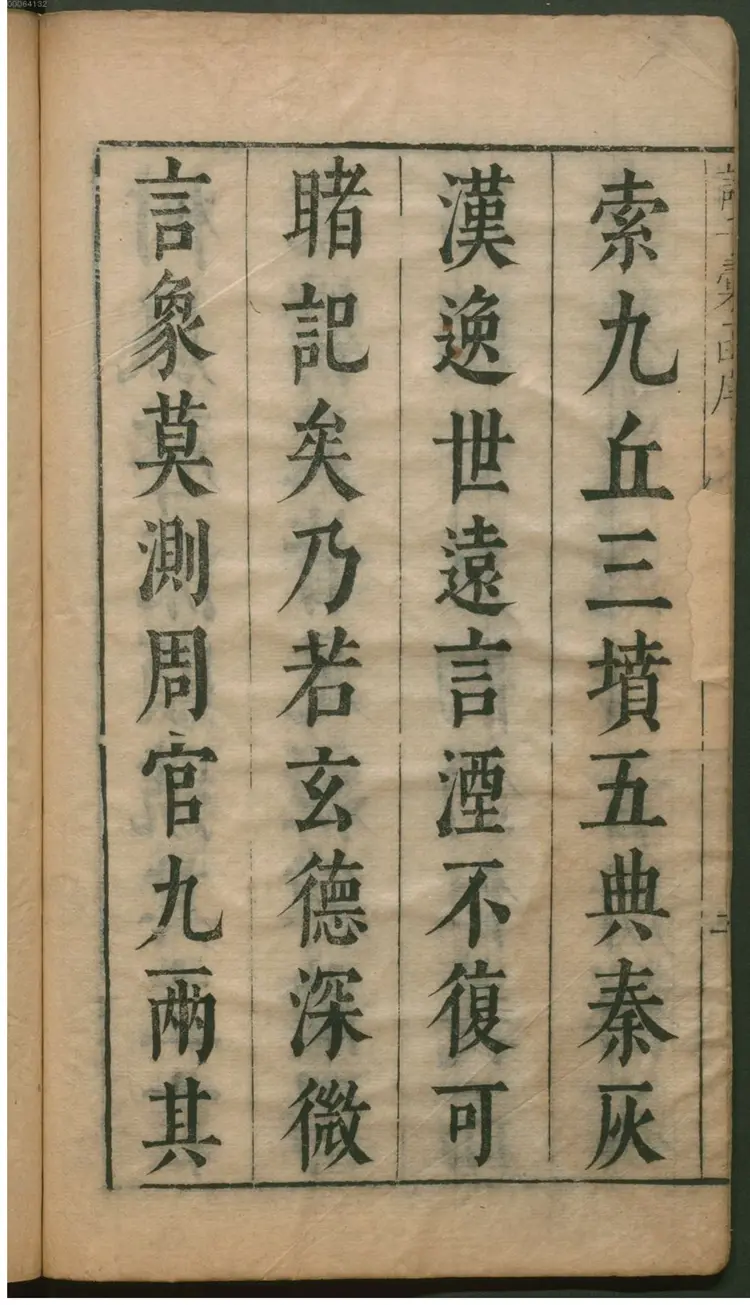 索九丘三墳五典秦灰
漢逸世遠言湮不復可
睹記矣乃若玄德深微
言象莫測周官九兩其
00064132